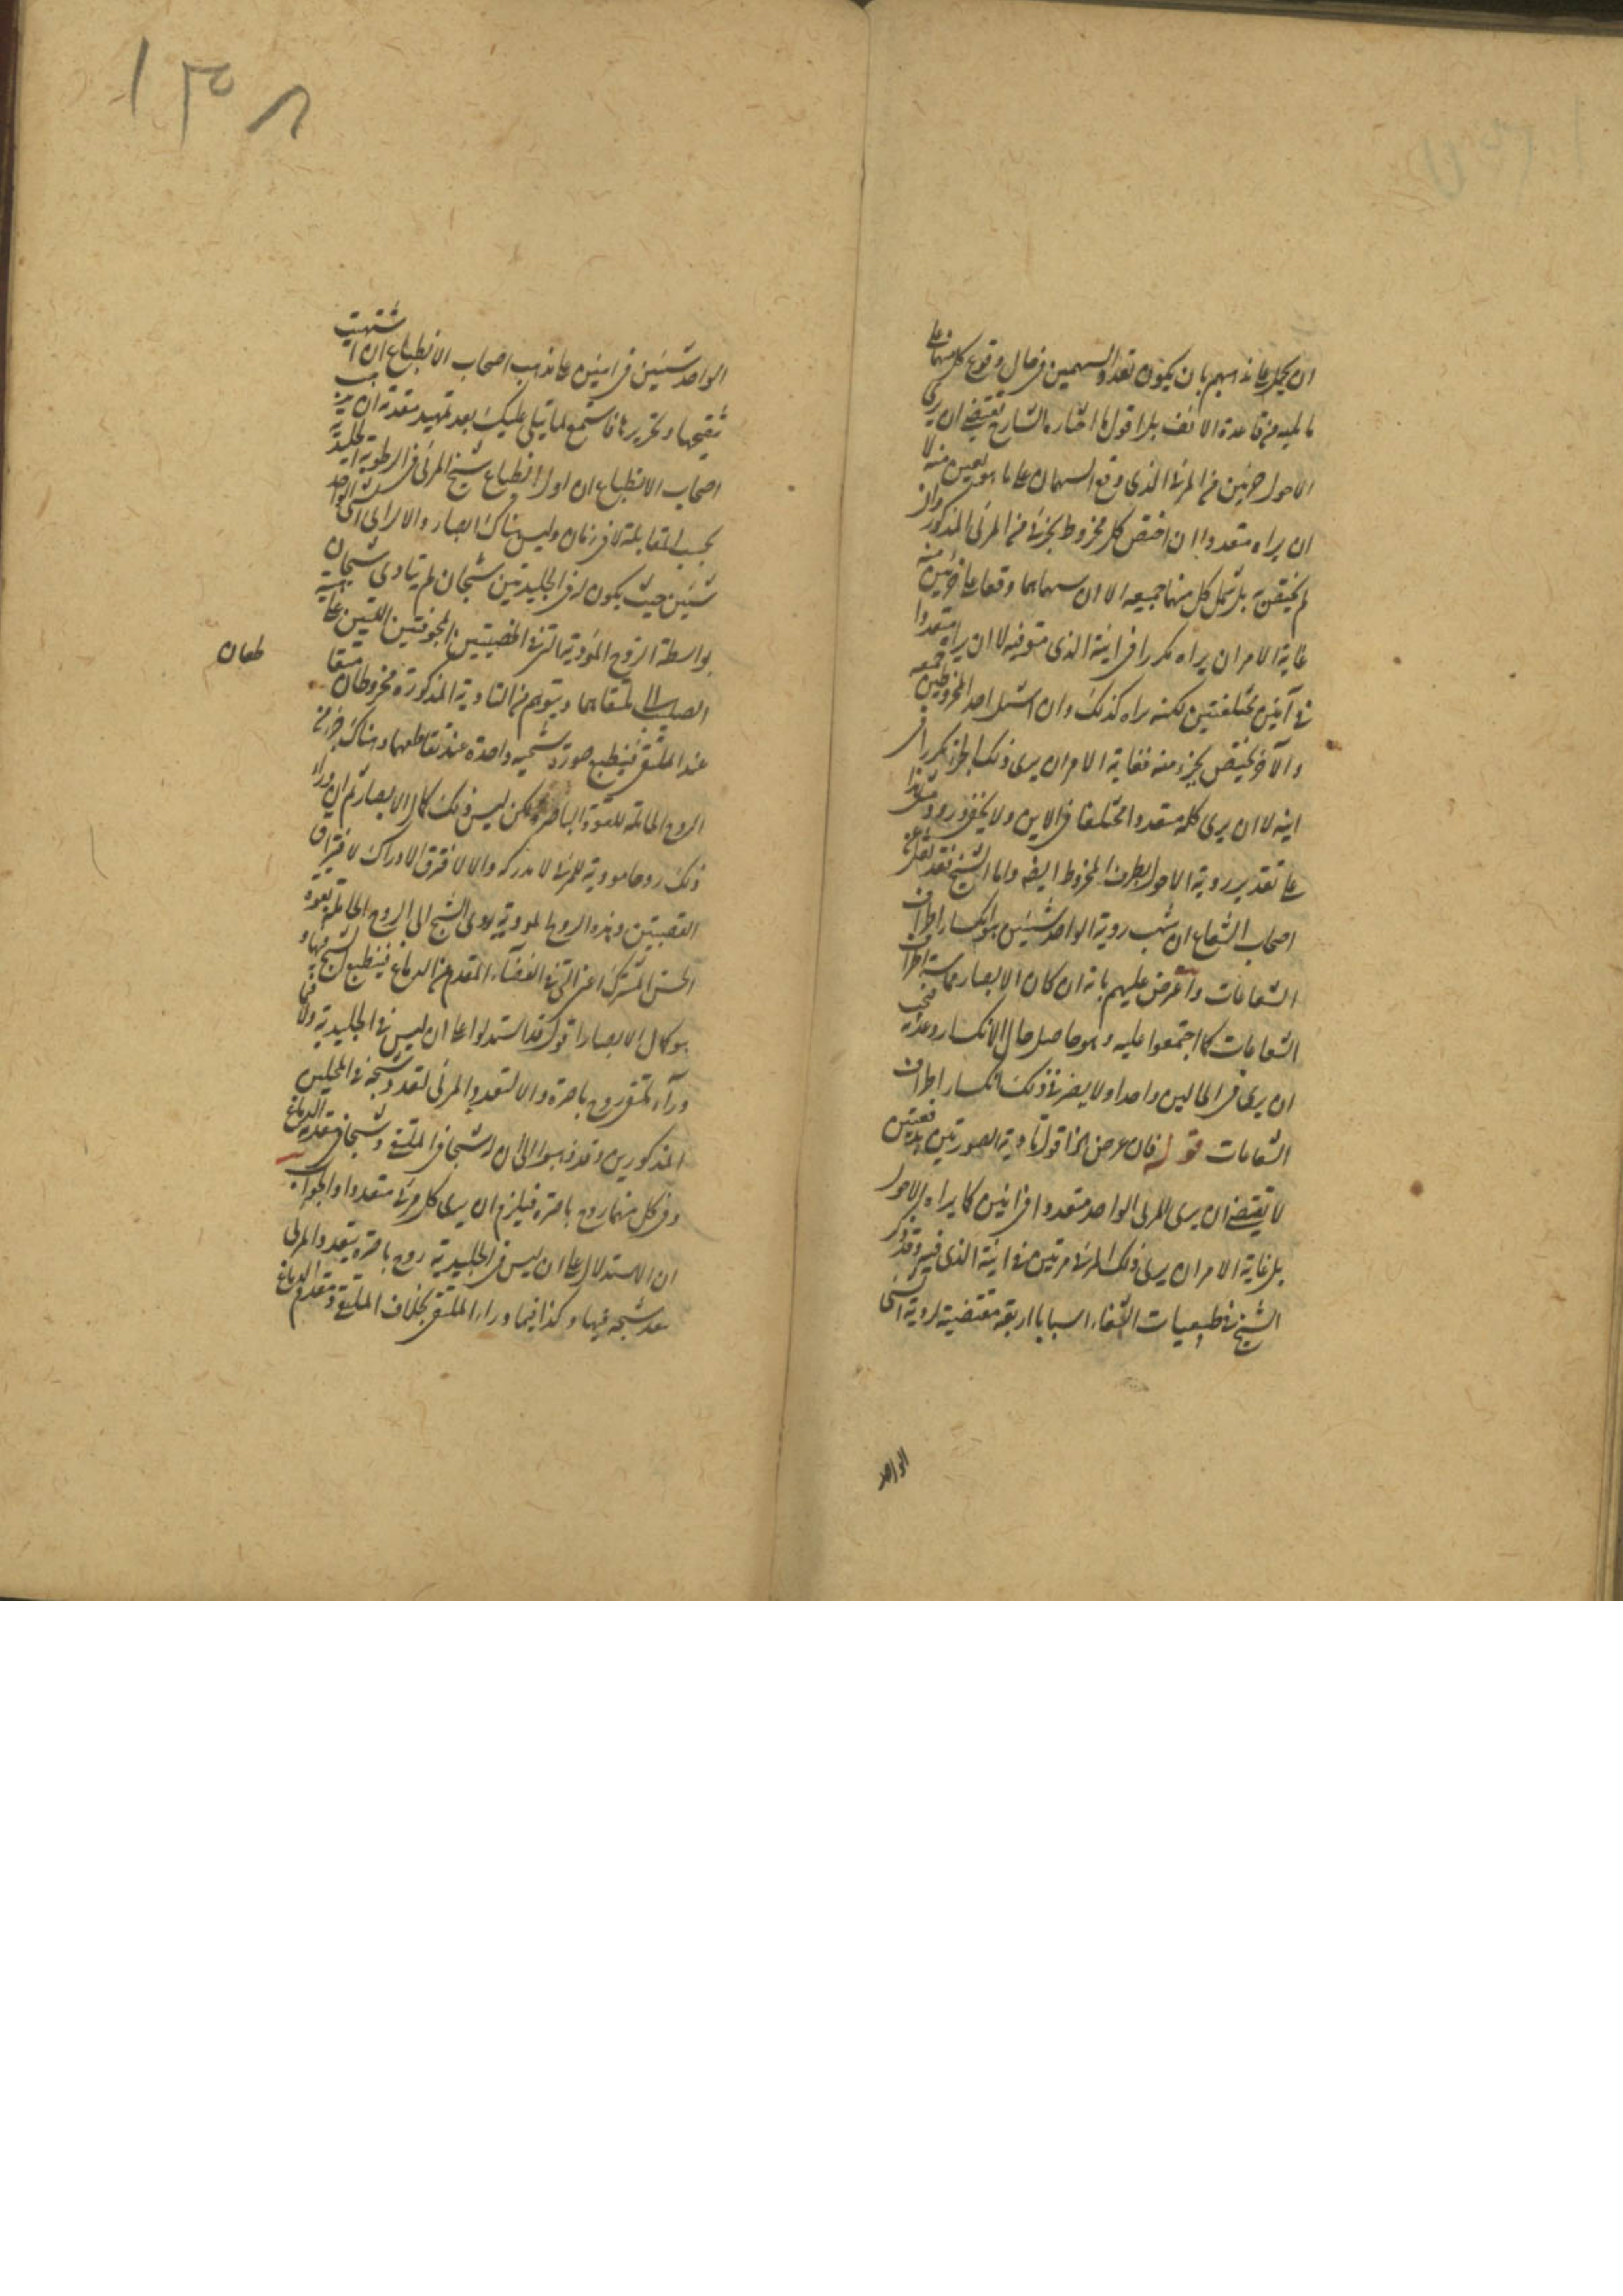 ان يحمل على مذهبهم بان يكون تعدد السهمين فى حال وقوع كل منهما على
ما يليه من قاعدة الانف بل اقول ما اختاره الشارح يقتضى ان يرى
الاحول جزئين من المرئى الذى وقع السهمان على ما هو يعين منه لا
ان يراه متعددا ان اختص كل مخروط بجزء من المرئى المذكور وان
لم يختص بل شمل كل منهما جميعه الا ان سهماهما وقعا على جزئين منه
غاية الامران يراه مكررا فى اينه الذى هو فيه لا ان يراه متعددا
فى آينين مختلفتين لكنه راه كذلك وان اشتمل احد المخروطين جميعه
والآخر يختص بجزء منه فغاية الامر ان يرى ذلك الجزء مكررا فى
اينه لا ان يرى كله متعددا مختلفا فى الاين ولا يخفى ورود مثل هذا
على تقدير روية الاحول بطرف المخروط ايضه واما الشيخ فقد نقل عن
اصحاب الشعاع ان سبب روية الواحد شيئين هو انكسار اطراف
الشعاعات واعترض عليهم بانه ان كان الابصار بمماسة اطراف
الشعاعات كما اجتمعوا عليه وهو حاصل حال الانكسار وعدمه فيجب
ان يرى فى الحالين واحدا ولا يضر فى ذلك انكسار اطراف
الشعاعات قوله فان عرض الخ اقول تادية الصورتين دفعتين
لا يقتضى ان يرى المرئى الواحد متعددا فى اينين كما يراه الاحول
بل غاية الامر ان يرى ذلك المرئى مرتين فى اينه الذى فيه وقد ذكر
الشيخ فى طبيعيات الشفاء اسبابا اربعة مقتضية لروية الشئ
الواحد
١٣٨
الواحد شيئين فى اينين على مذهب اصحاب الانطباع ان اشتهيت
تنقيحها وتحريرها فاستمع لما يتلى عليك بعد تمهيد مقدمة ان مذهب
اصحاب الانطباع ان اول انطباع شبح المرئى فى الرطوبة الجليدية
بحسب المقابلة لا فى زمان وليس هناك ابصار والا لراى الشئ الواحد
شيئين حيث يكون له فى الجليديتين شبحان ثم يتادى شبحان
بواسطة الروح المؤدية التى فى العصبتين المجوفتين اللتين على هيئة
الصليب الى ملتقاهما ويتوهم من التادية المذكورة مخروطان يتقا
طعان
عند الملتقى فينطبع صورة شبحية واحدة عند تقاطعهما وهناك جزء من
الروح الحاملة للقوة الباصرة ولكن ليس ذلك كمال الابصار ثم ان وراء
ذلك روحا مودية للمرئى لا مدركة والا لافترق الادراك لافتراق
العصبتين وهذه الروح المودية يودى الشبح الى الروح الحاملة بقوة
الحس المشترك اعنى التى فى الفضاء المقدم من الدماغ فينطبع الشبح فيها و
هو كمال الابصار اقول قد استدلوا على ان ليس فى الجليدية ولا فيما
ورآء الملتقى روح باصرة والا لتعدد المرئى لتعدد شبحه فى المحلين
المذكورين وقد ذهبوا الى ان له شبحا فى الملتقى وشبحا فى مقدم الدماغ
وفى كل منهما روح باصرة فيلزم ان يرى كل مرئى متعددا والجواب
ان الاستدلال على ان ليس فى الجليدية روح باصرة بتعدد المرئى
بعدد شبحه فيها وكذا فيما وراء الملتقى بخلاف الملتقى ومقدم الدماغ